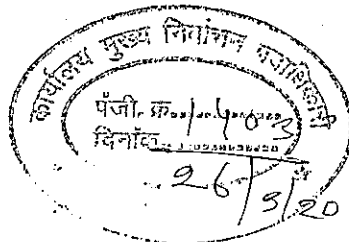 कार्यालय मुख्य निर्वाचन पदाधिकारी
पंजी. क्र......1403
दिनांक..............
26/3/20